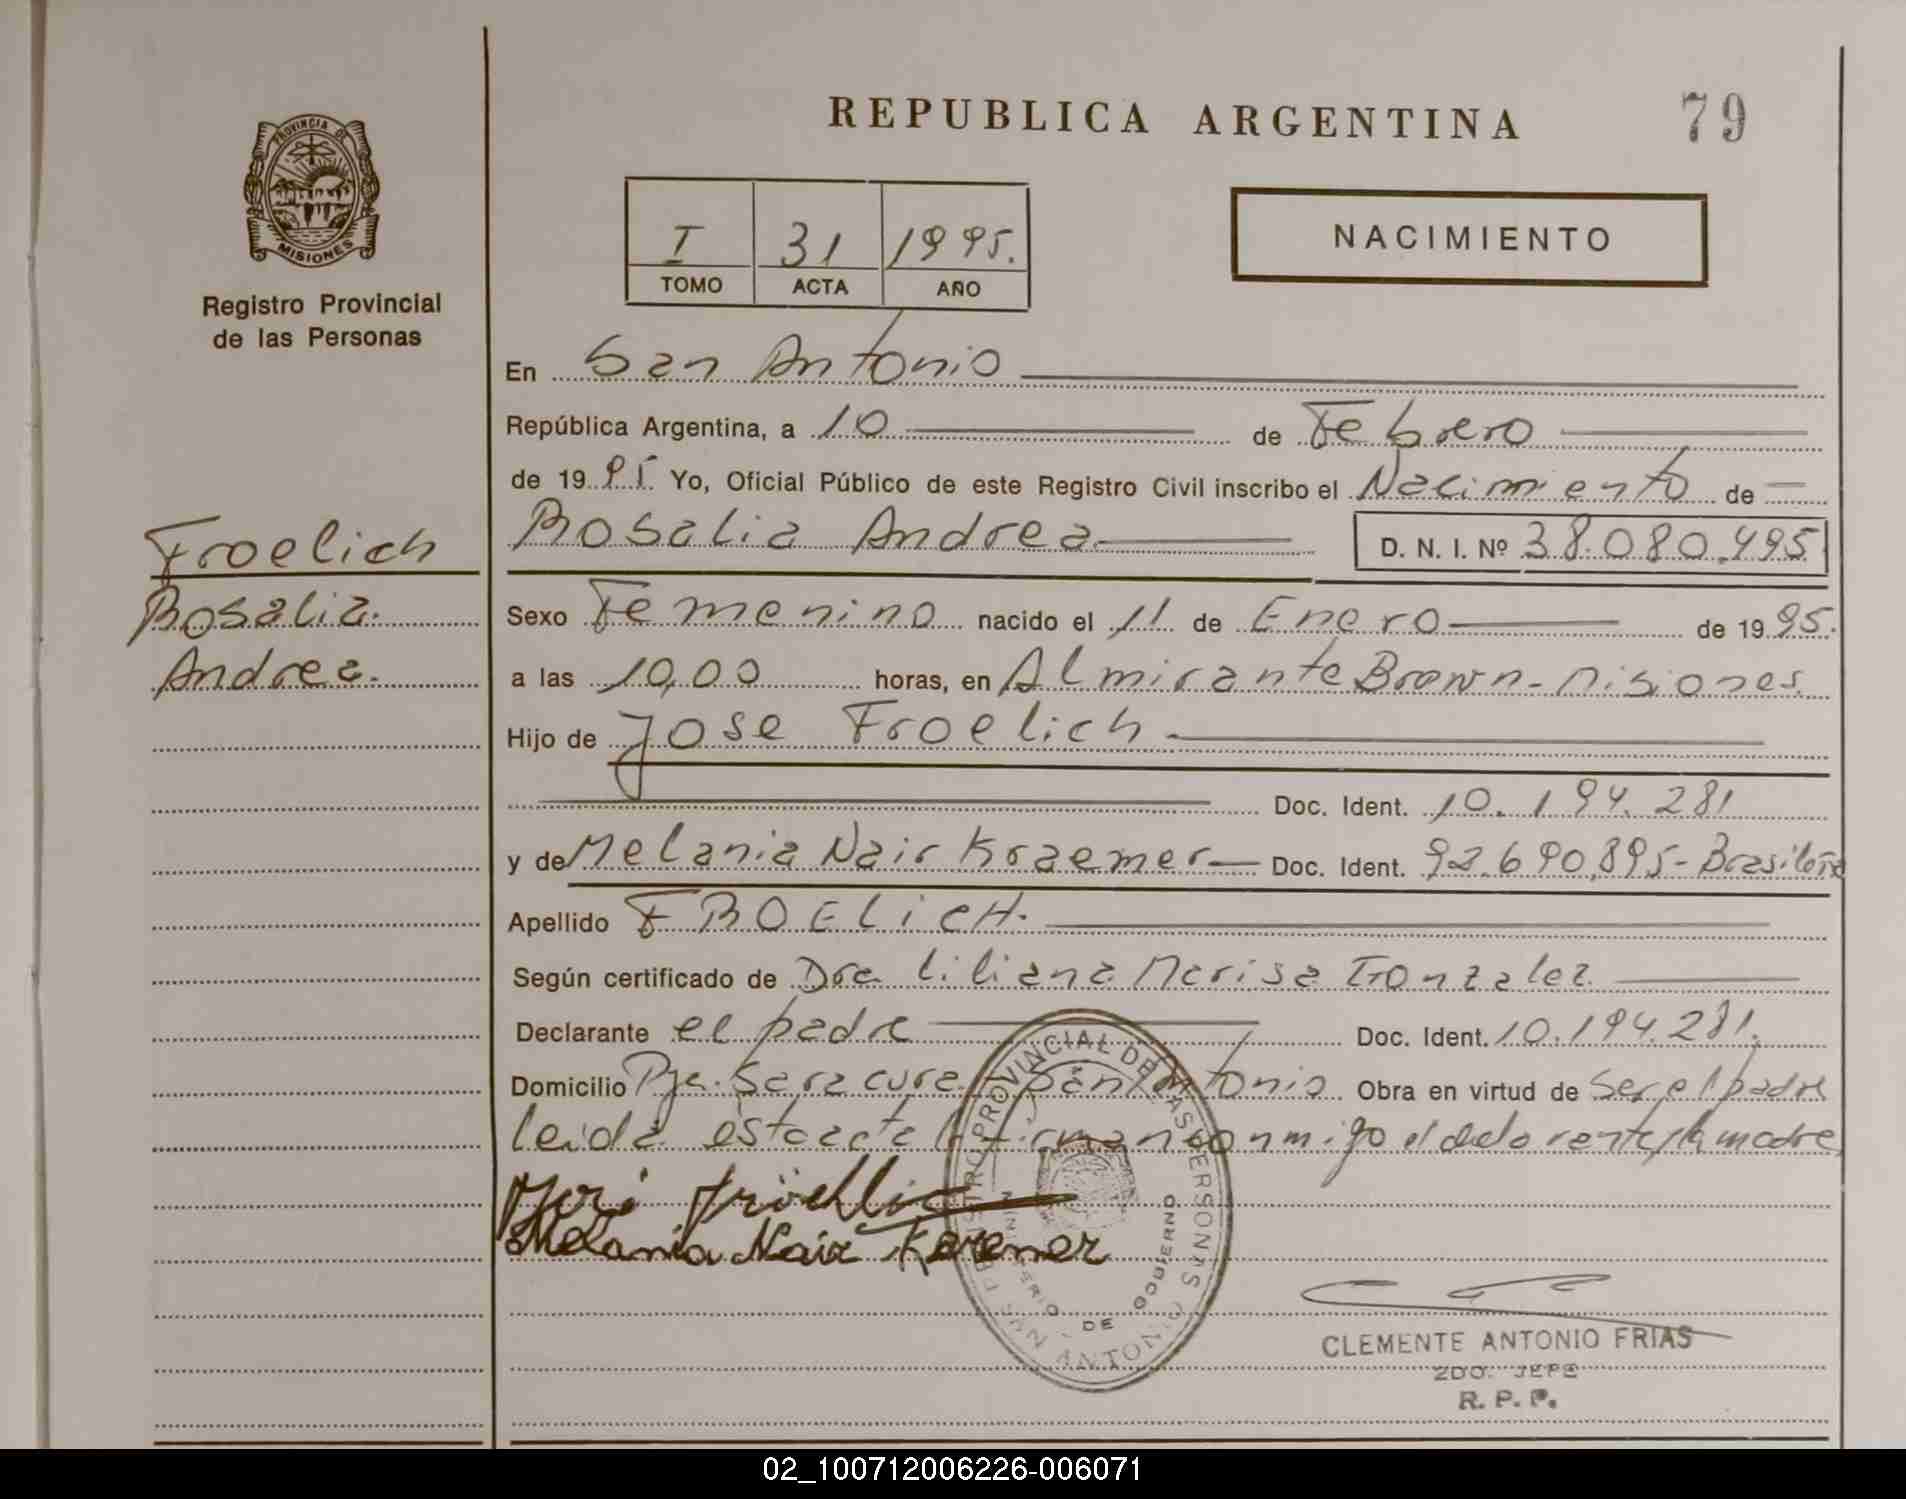 REPUBLICA ARGENTINA
79
PROVINCIA DE
MISIONES
Registro Provincial
de las Personas
I 31 1995.
TOMO ACTA AÑO
NACIMIENTO
En San Antonio
República Argentina, a 10 de Febrero
de 1995. Yo, Oficial Público de este Registro Civil inscribo el Nacimiento de
Froelich
Rosalia
Andrea.
Rosalia Andrea D. N. I. Nº 38.080.495
Sexo Femenino nacido el 11 de Enero de 1995.
a las 10,00 horas, en Almirante Brown - Misiones.
Hijo de Jose Froelich.
Doc. Ident. 10.194.281
y de Melania Nair Kraemer Doc. Ident. 92.690.895 - Brasileña
Apellido FROELICH.
Según certificado de Dra Liliana Marisa Gonzalez
Declarante el padre Doc. Ident. 10.194.281.
Domicilio Pje. Saracura. San Antonio Obra en virtud de ser el padre
leida esta acta la firman conmigo el declarante y la madre
José Fröellic
Melania Nair Kremer
REGISTRO PROVINCIAL DE LAS PERSONAS
MINISTERIO DE GOBIERNO
SAN ANTONIO
CLEMENTE ANTONIO FRIAS
2DO. JEFE
R. P. P.
02_100712006226-006071